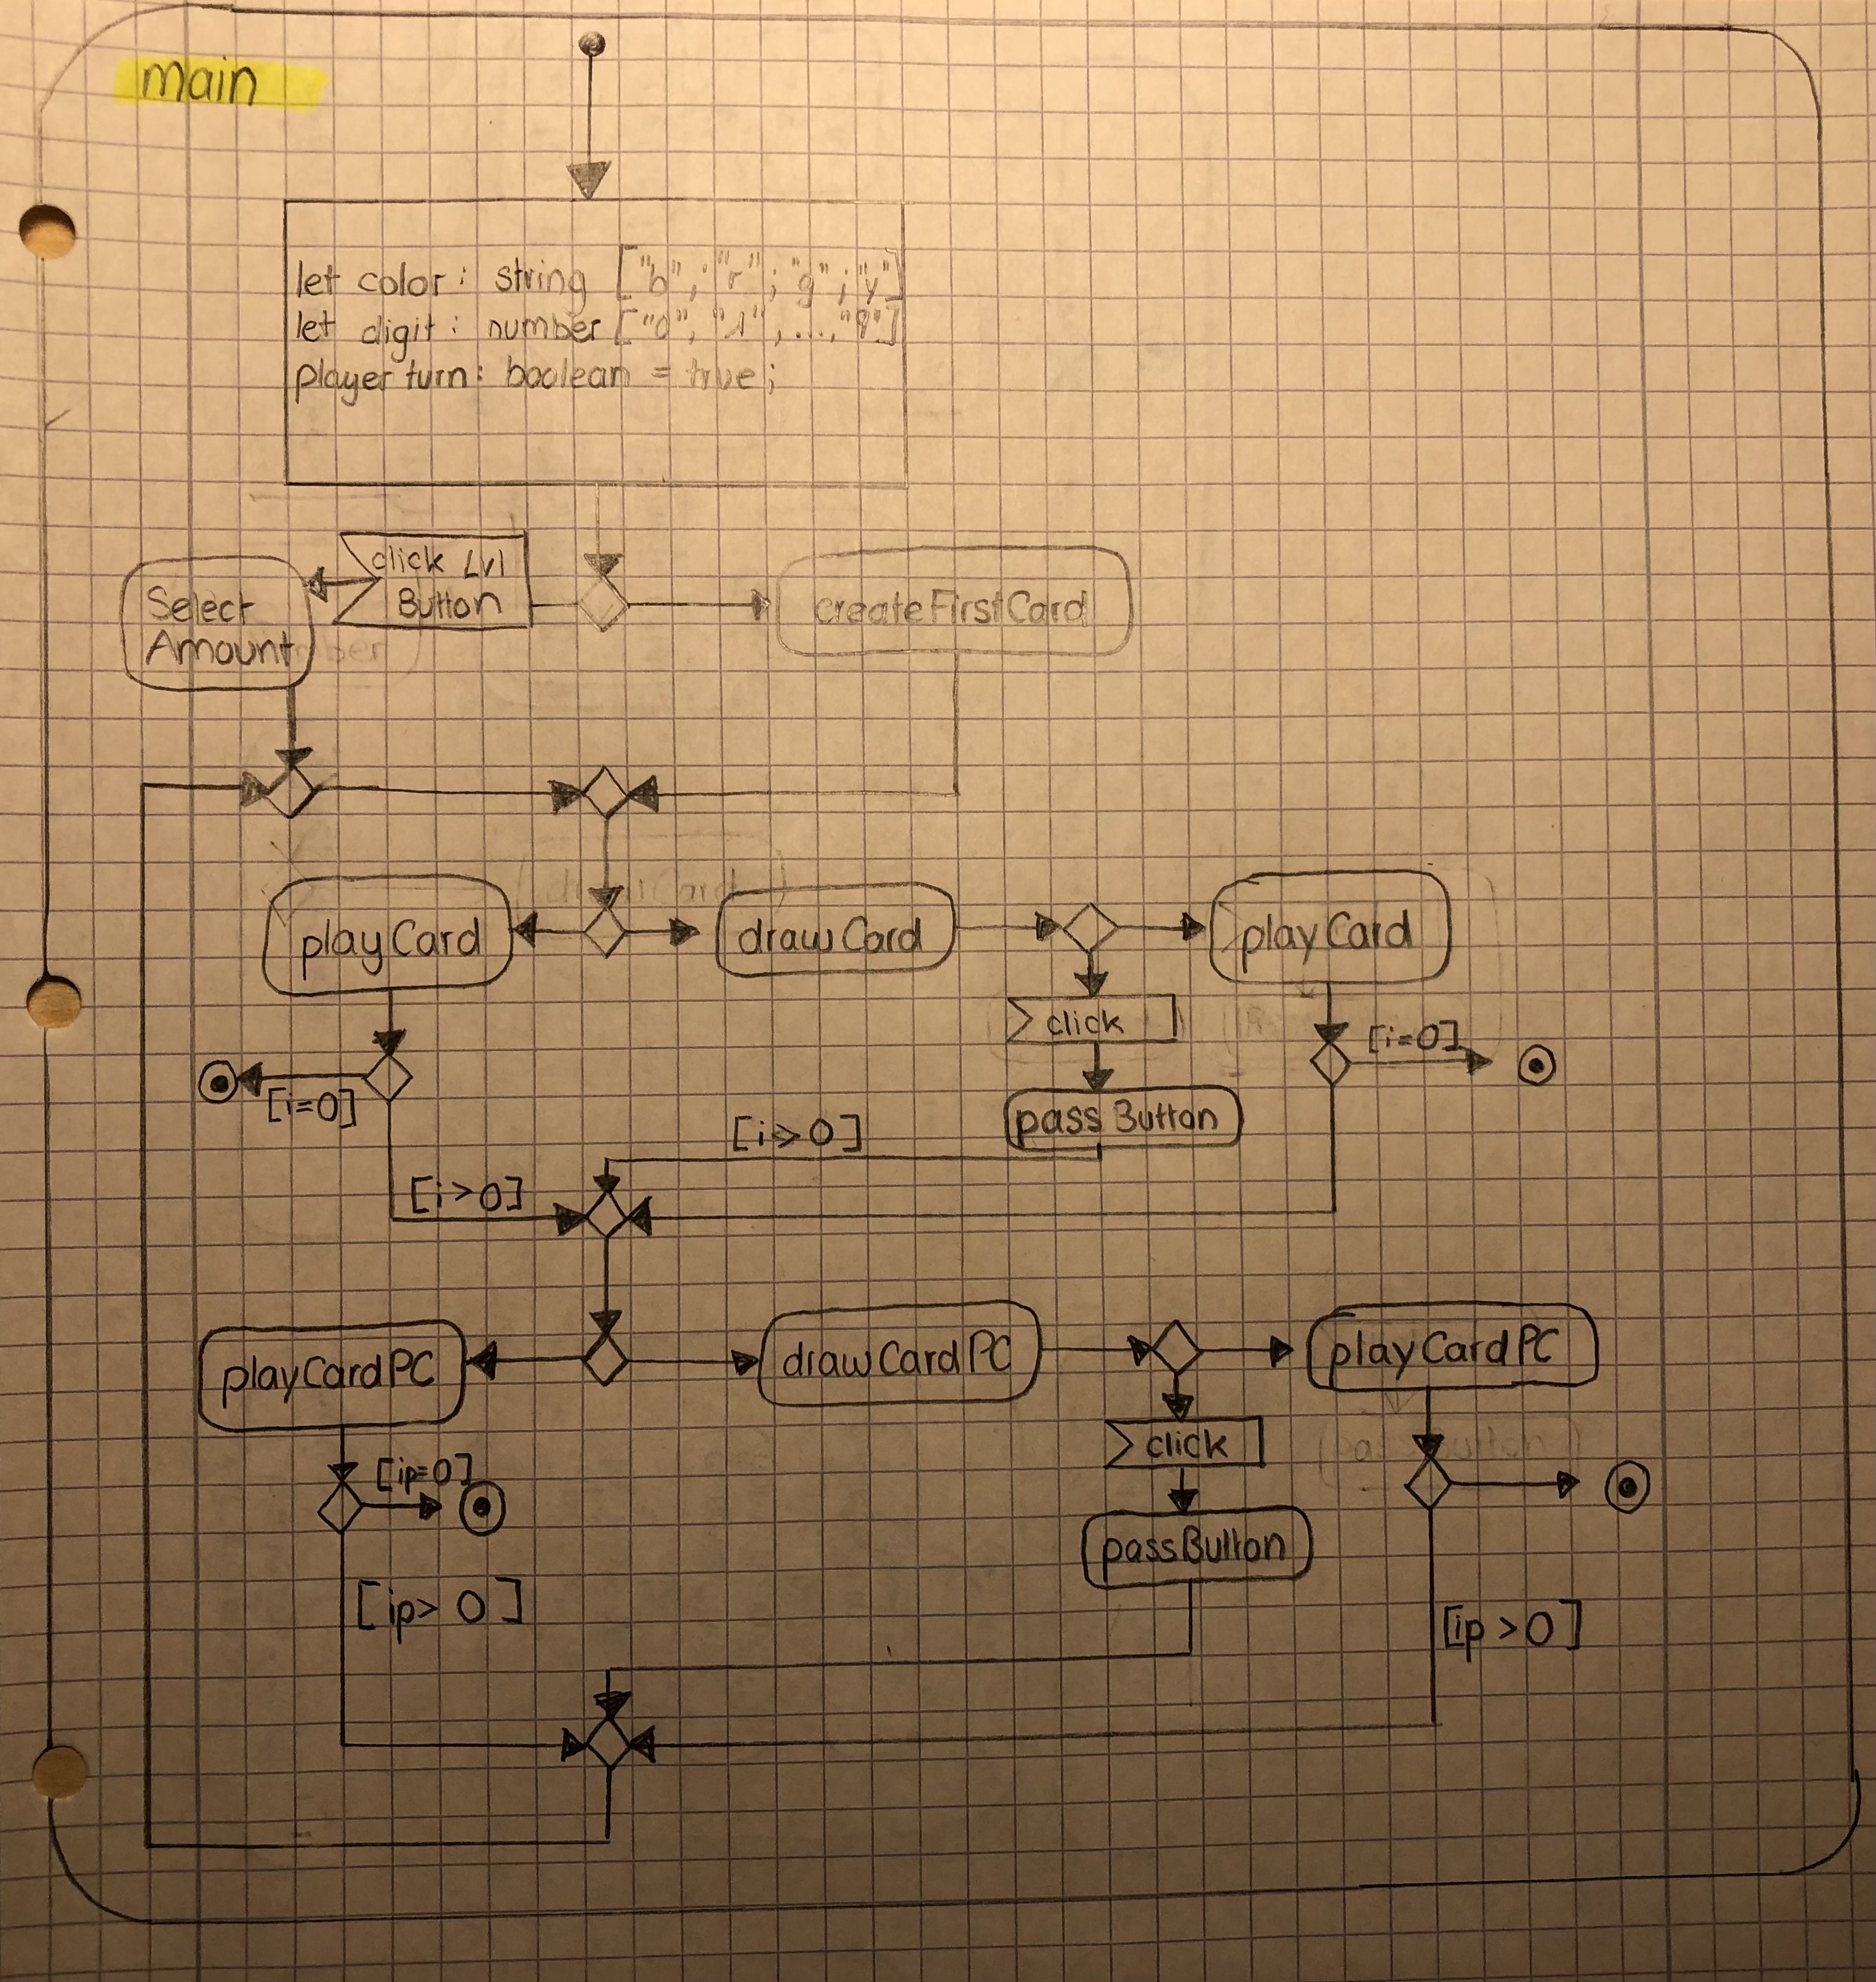 main
let color: string ["b"; "r"; "g"; "y"]
let digit: number ["0", "1", ..., "9"]
player turn: boolean = true;
click Lvl
Button
Select
Amount
createFirstCard
playCard
drawCard
playCard
click
[i=0]
[i=0]
pass Button
[i>0]
[i>0]
playCardPC
drawCardPC
playCardPC
click
[ip=0]
passButton
[ip> 0]
[ip >0]